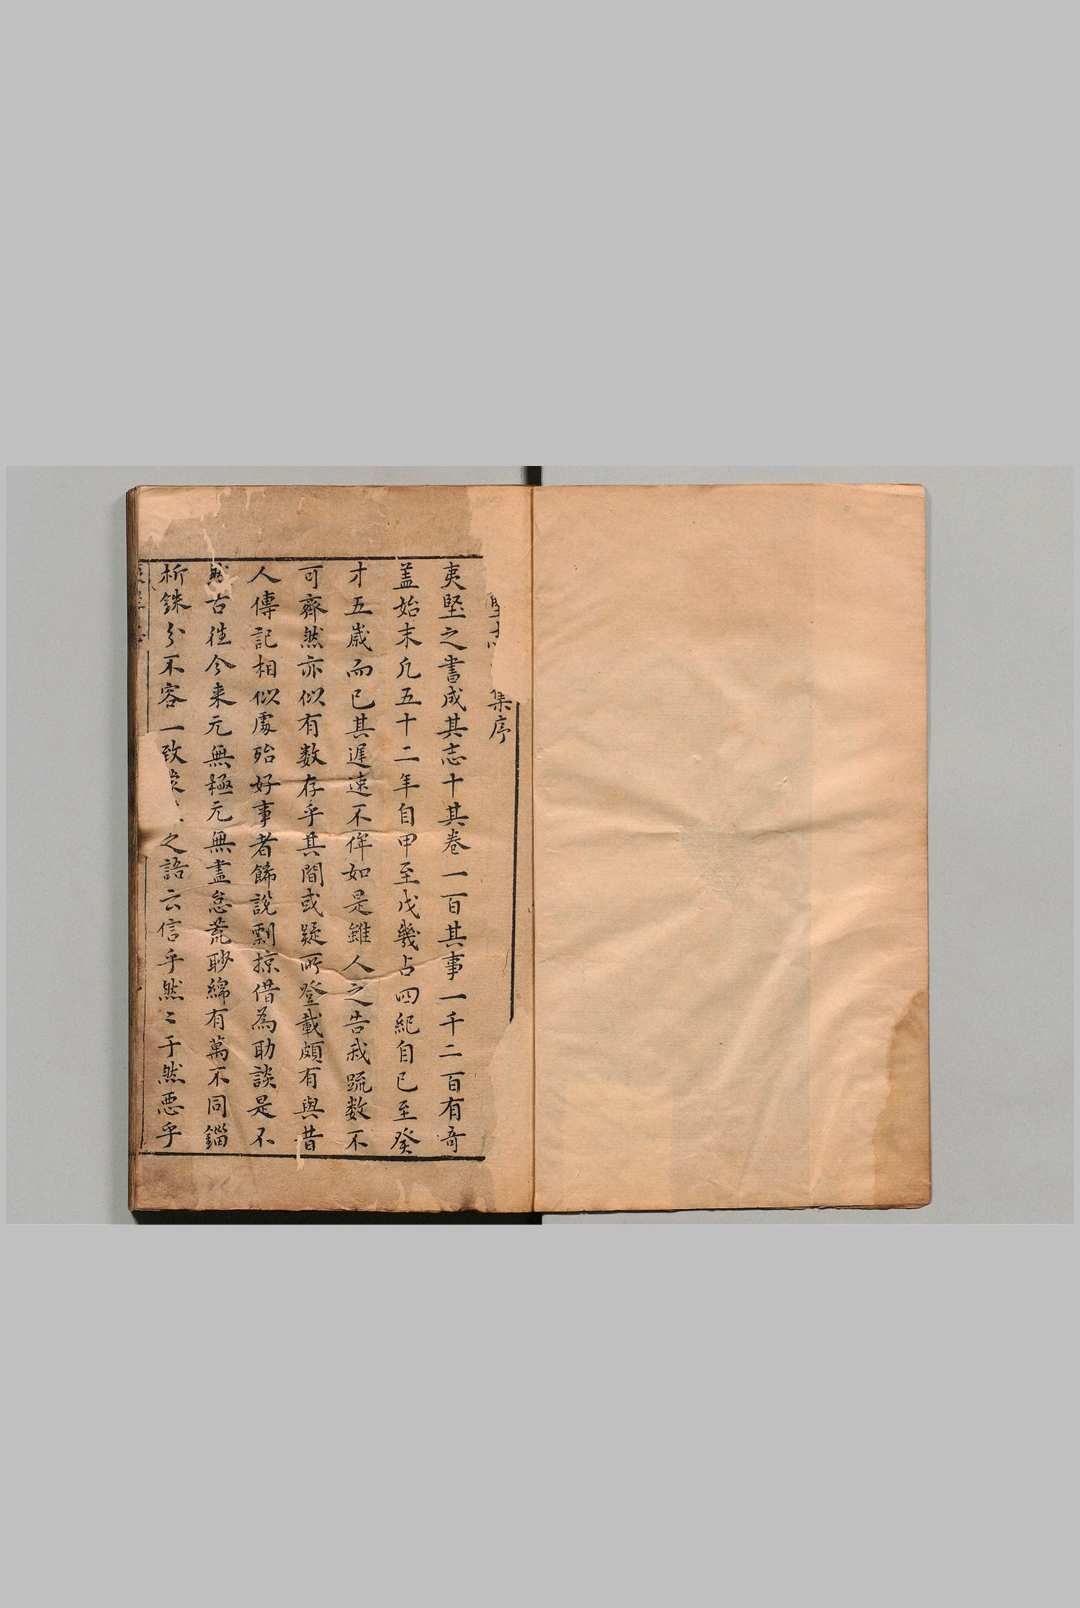 堅志 集序
夷堅之書成其志十其卷一百其事一千二百有奇
盖始末凡五十二年自甲至戊幾占四紀自已至癸
才五歲而已其遲速不侔如是雖人之告我踈数不
可齊然亦似有数存乎其間或疑所登載頗有與昔
人傳記相似處殆好事者飾說剽掠借為助談是不
然古徃今来元無極元無盡怠荒眇綿有萬不同錙
析銖分不容一致 之語云信乎然〻于然悪乎